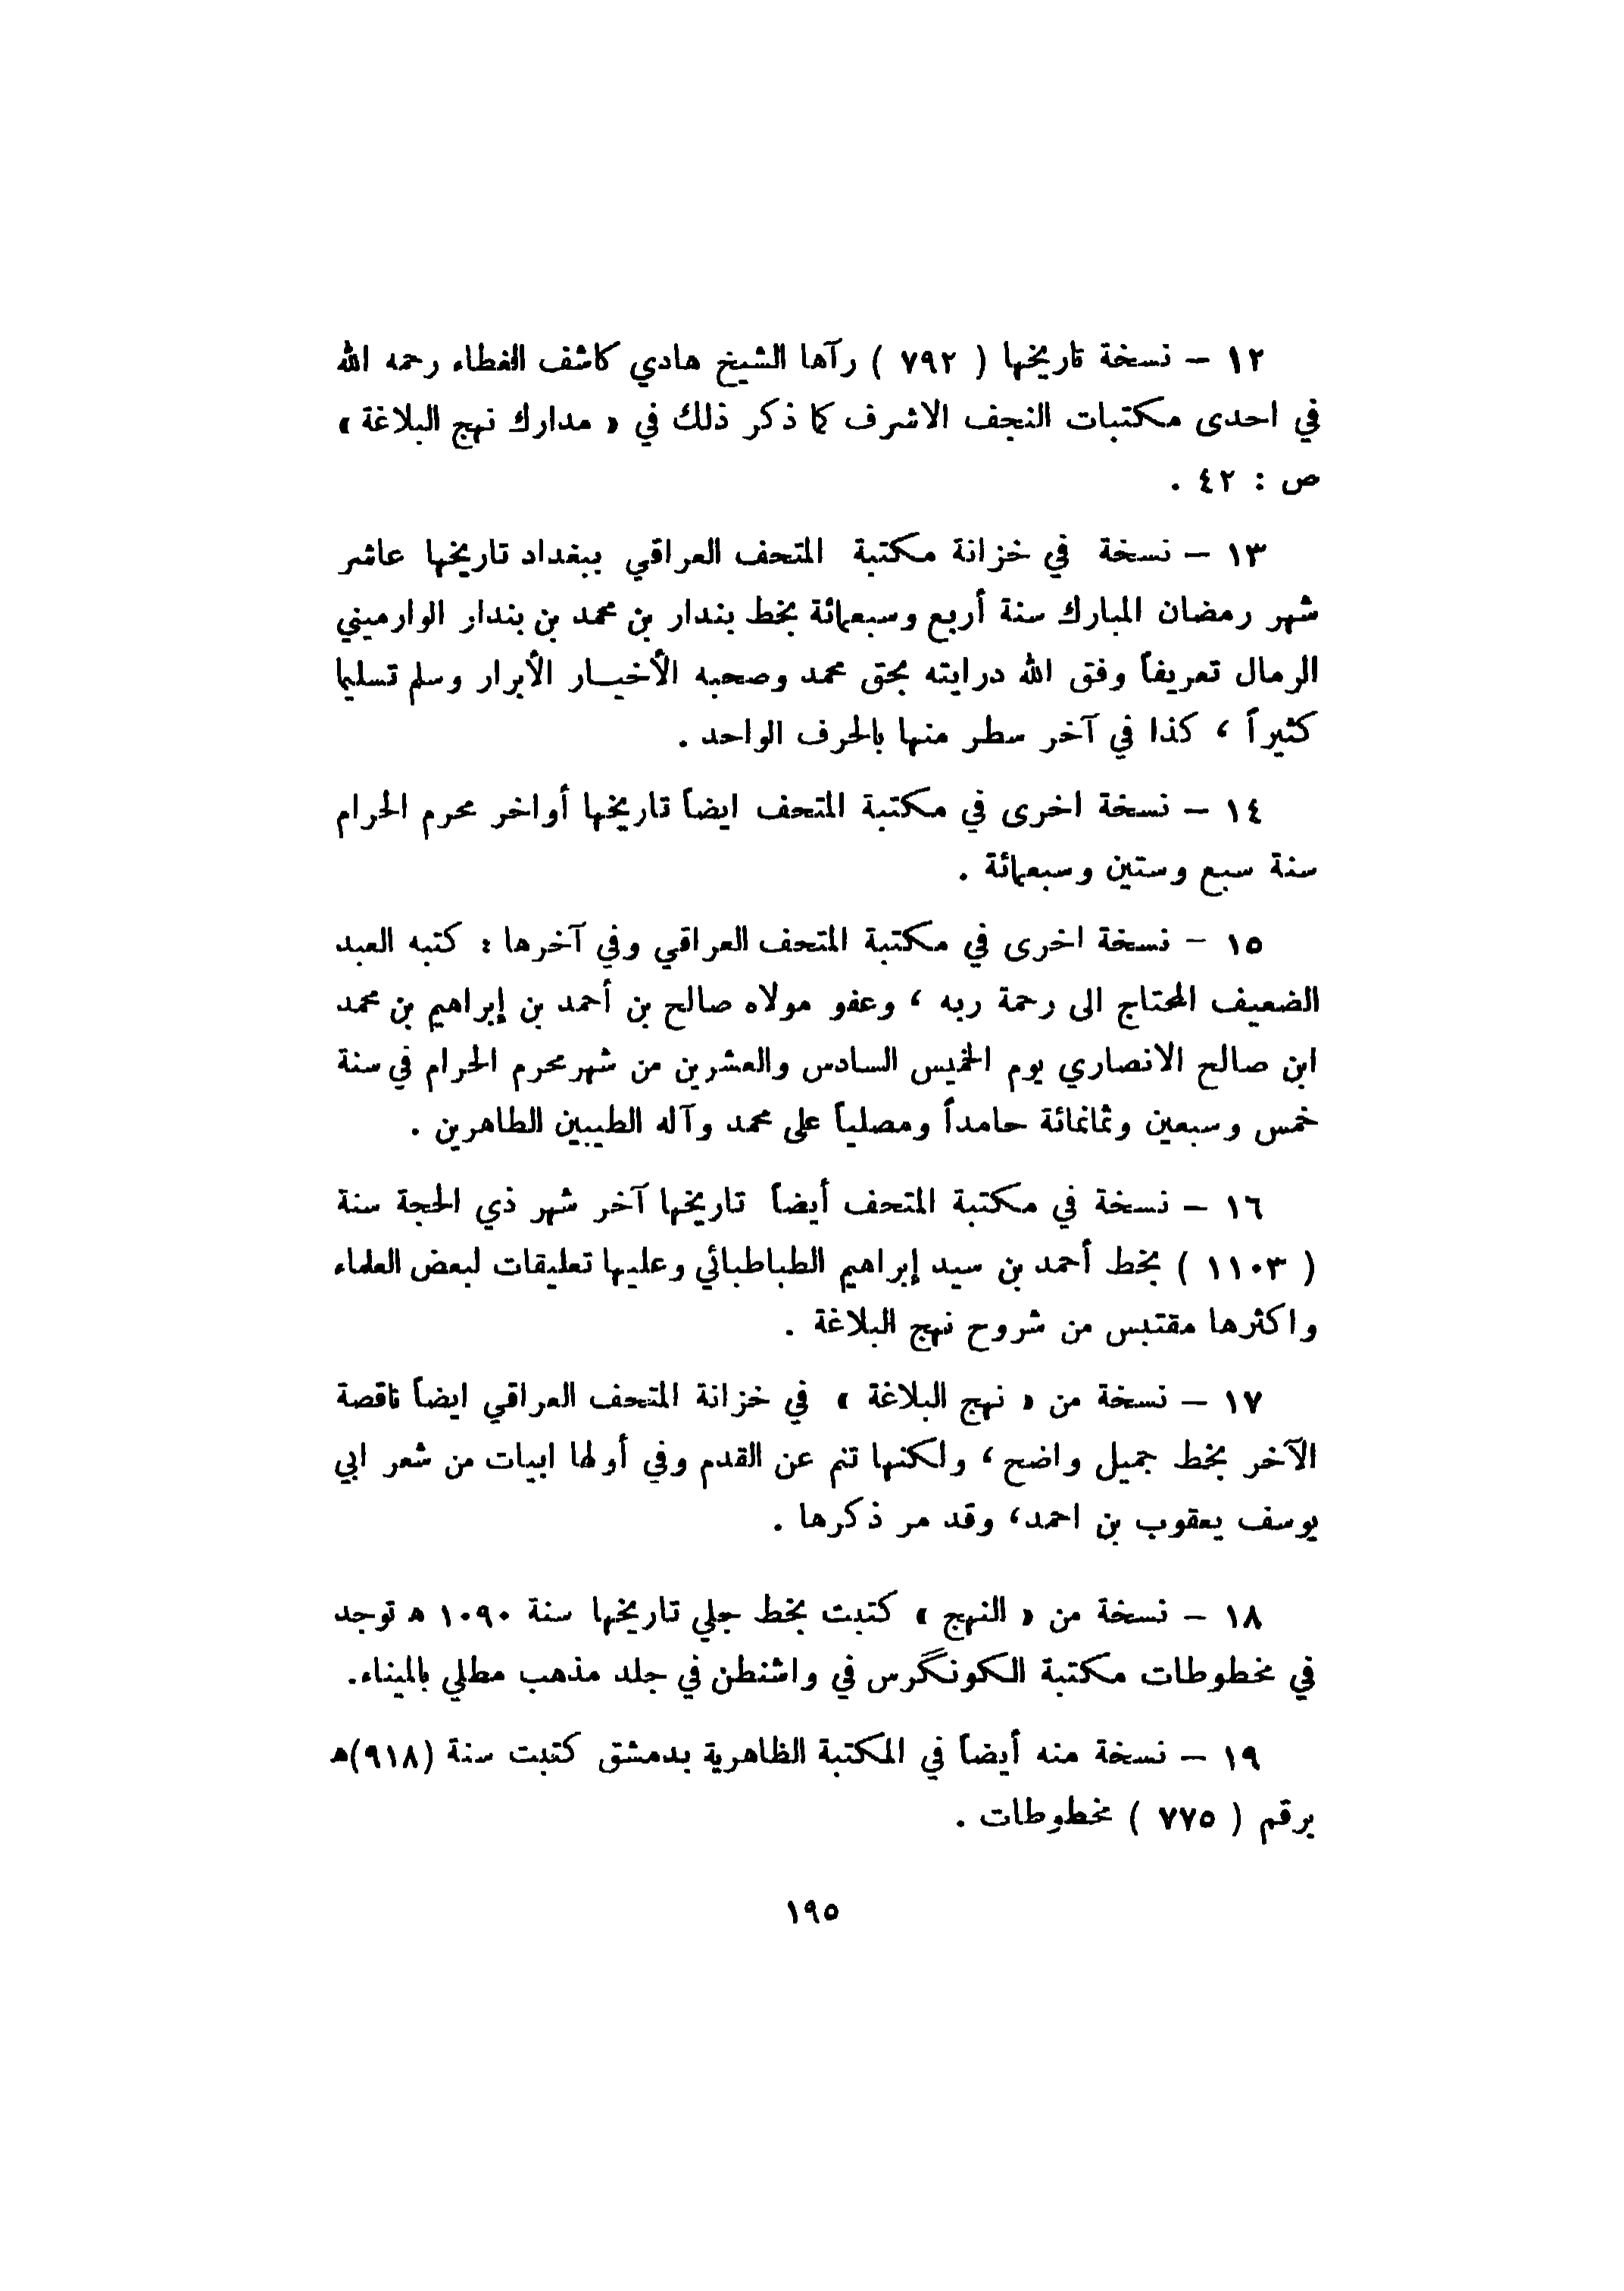 ١٢ – نسخة تاريخها ( ٧٩٢ ) رآها الشيخ هادي كاشف الغطاء رحمه الله
في احدى مكتبات النجف الاشرف كما ذكر ذلك في « مدارك نهج البلاغة »
ص : ٤٢ .
١٣ – نسخة في خزانة مكتبة المتحف العراقي ببغداد تاريخها عاشر
شهر رمضان المبارك سنة أربع وسبعمائة بخط بندار بن محمد بن بندار الوارميني
الرمال تعريفاً وفق الله درايته بحق محمد وصحبه الأخيــار الأبرار وسلم تسليما
كثيراً ، كذا في آخر سطر منها بالحرف الواحد .
١٤ – نسخة اخرى في مكتبة المتحف ايضاً تاريخها أواخر محرم الحرام
سنة سبع وستين وسبعمائة .
١٥ – نسخة اخرى في مكتبة المتحف العراقي وفي آخرها : كتبه العبد
الضعيف المحتاج الى رحمة ربه ، وعفو مولاه صالح بن أحمد بن إبراهيم بن محمد
ابن صالح الانصاري يوم الخميس السادس والعشرين من شهر محرم الحرام في سنة
خمس وسبعين وثمانمائة حامداً ومصلياً على محمد وآله الطيبين الطاهرين .
١٦ – نسخة في مكتبة المتحف أيضاً تاريخها آخر شهر ذي الحجة سنة
( ١١٠٣ ) بخط أحمد بن سيد إبراهيم الطباطبائي وعليها تعليقات لبعض العلماء
واكثرها مقتبس من شروح نهج البلاغة .
١٧ – نسخة من « نهج البلاغة » في خزانة المتحف العراقي ايضاً ناقصة
الآخر بخط جميل واضح ، ولكنها تنم عن القدم وفي أولها ابيات من شعر ابي
يوسف يعقوب بن احمد، وقد مر ذكرها .
١٨ – نسخة من « النهج » كتبت بخط جلي تاريخها سنة ١٠٩٠ ه توجد
في مخطوطات مكتبة الكونگرس في واشنطن في جلد مذهب مطلي بالميناء.
١٩ – نسخة منه أيضاً في المكتبة الظاهرية بدمشق كتبت سنة (٩١٨)ه
برقم ( ٧٧٥ ) مخطوطات .
١٩٥